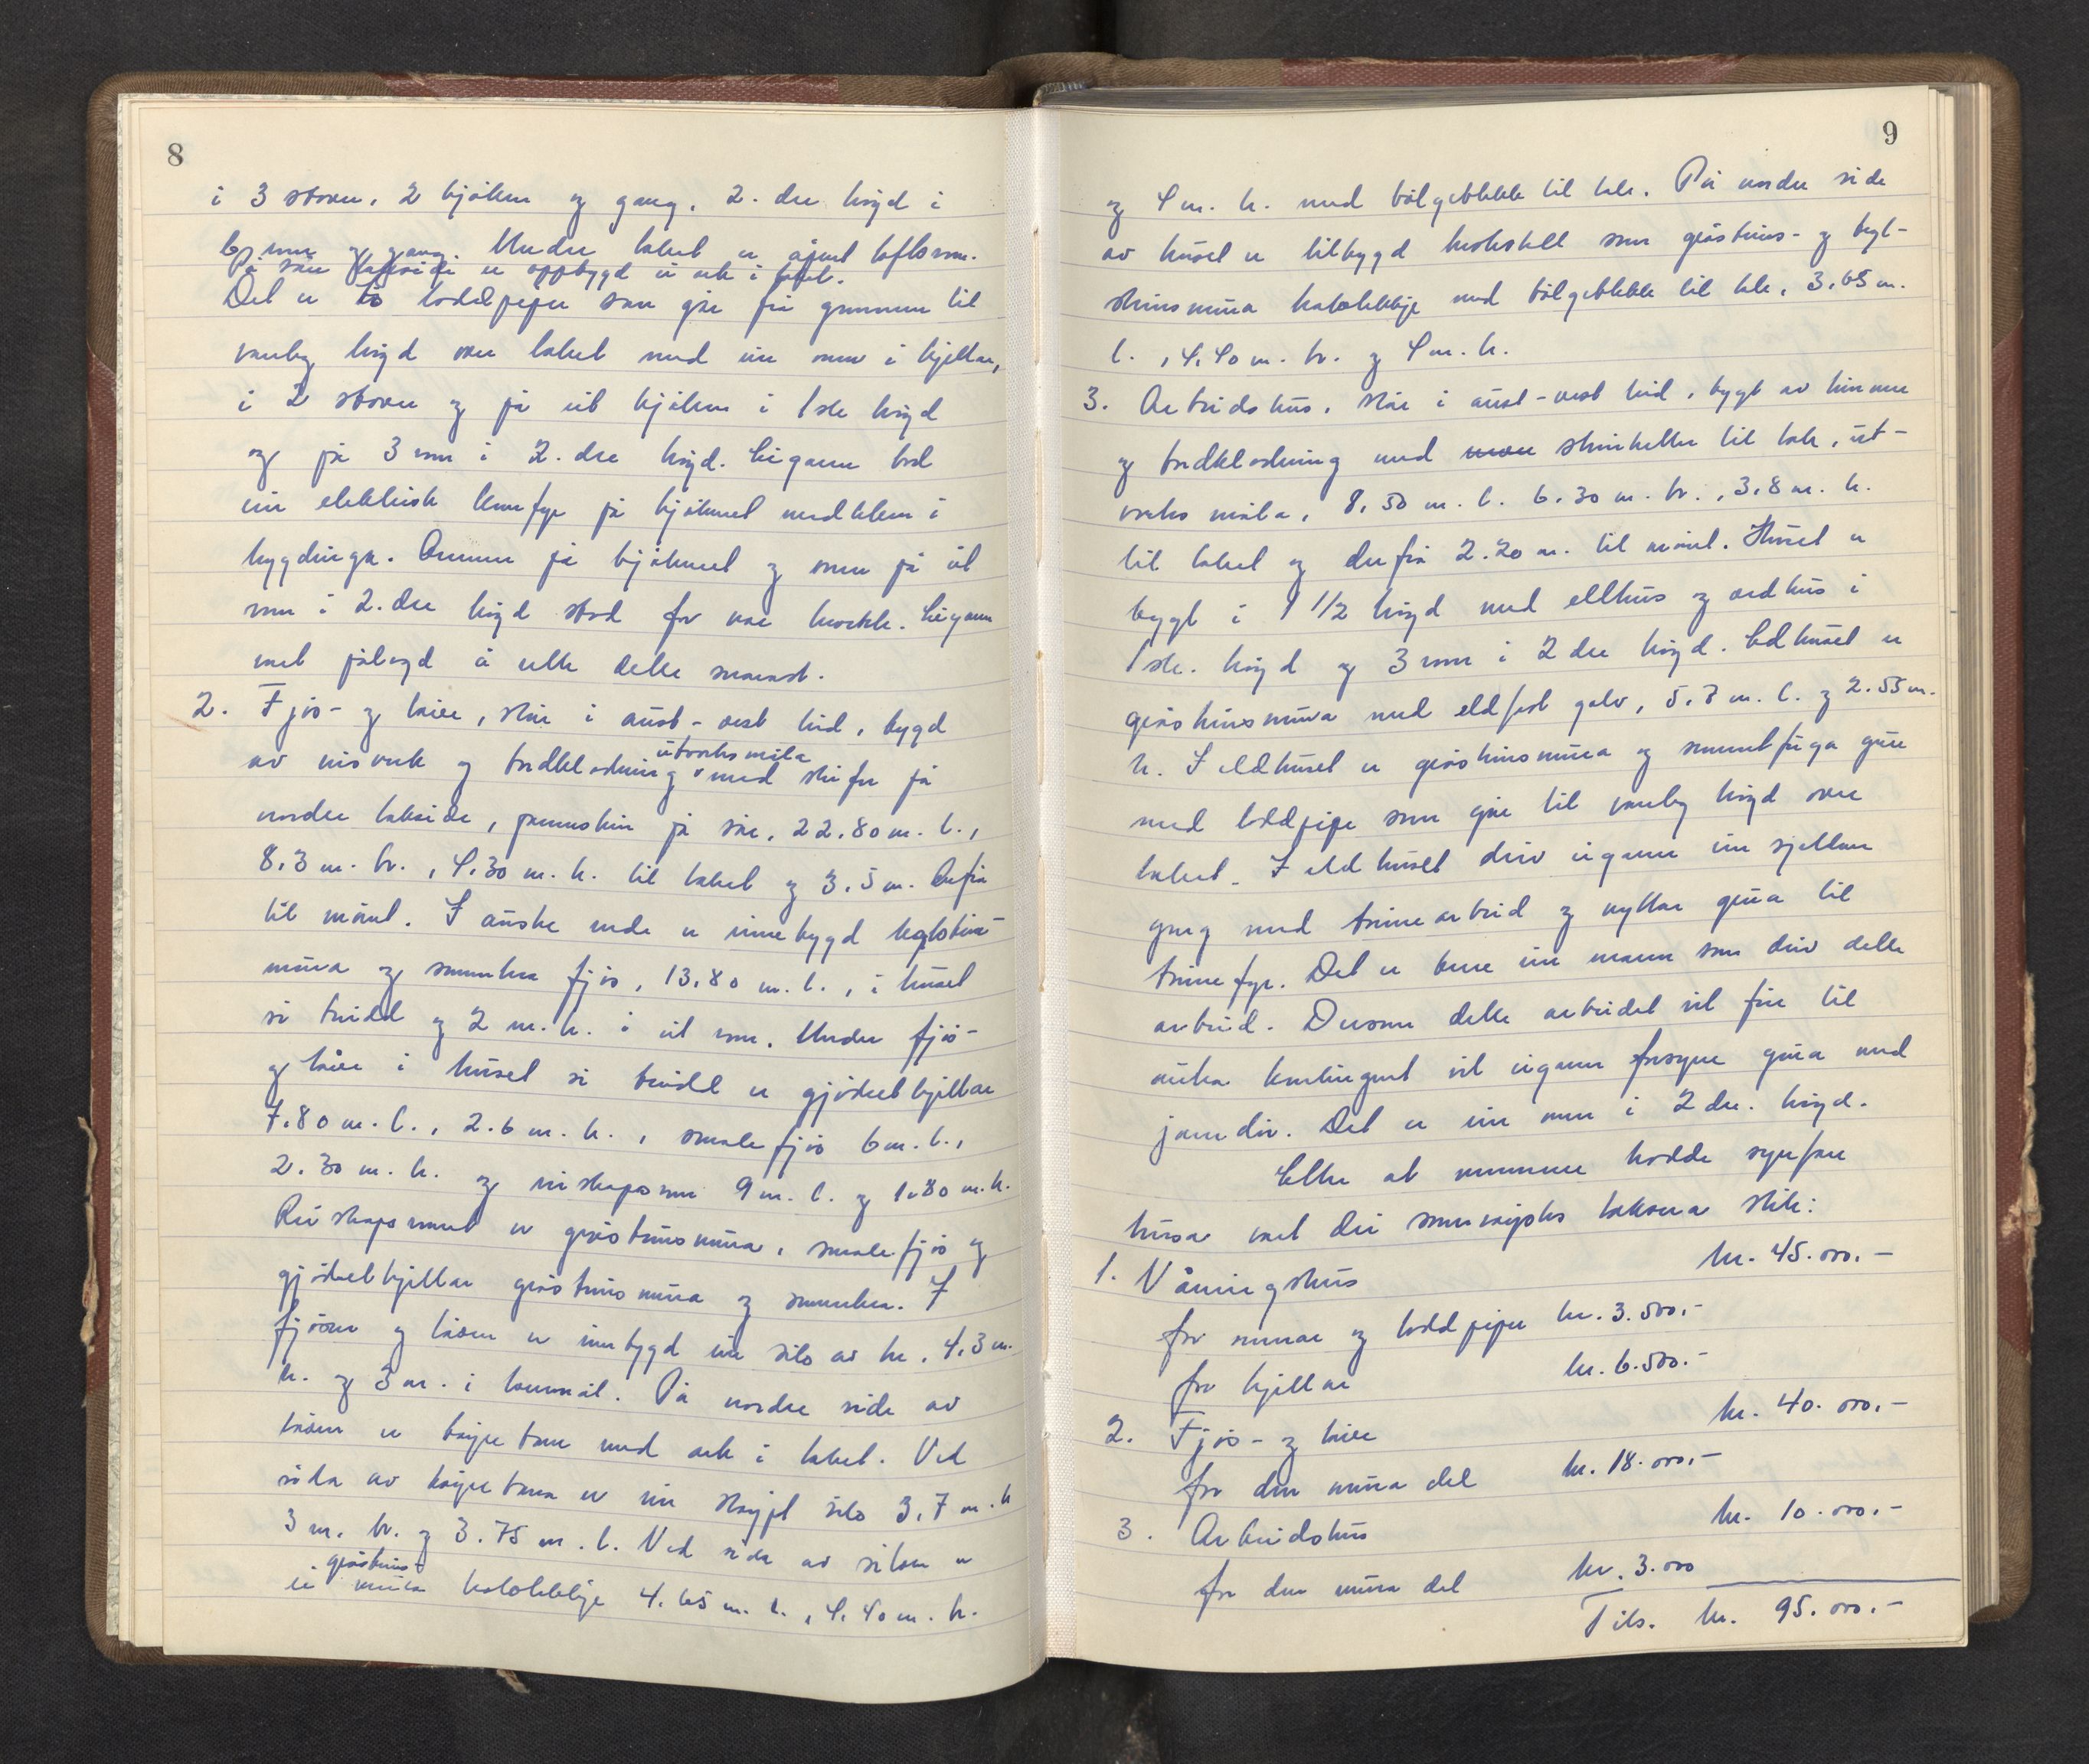 8
i 3 stover, 2 kjøken og gang, 2. dre høgd i
6 rom og gang. Under taket er åpent loftsrom.
På søre takside er oppbygd ei ark i taket.
Det er to loddpiper som går frå grunnen til
vanleg høgd over taket med ein omn i kjellar,
i 2 stover og på eit kjøken i 1ste høgd
og på 3 rom i 2. dre høgd. Eigaren bad
ein elektrisk komfyr på kjøkenet medteken i
bygdinga. Omnen på kjøkenet og omn på eit
rom i 2. dre høgd stod for nær treverk. Eigaren
vart pålagd å rette dette snarast.
2. Fjøs- og løe, står i aust-vest leid, bygd
av reisverk og bordkledning utvortes måla med skifer på
nordre takside, pannestein på søre, 22.80 m. l.,
8.3 m. br., 4.30 m. h. til taket og 3.5 m. derfrå
til mønet. I austre ende er innebygd teglsteins-
mura og sementera fjøs, 13.80 m. l., i huset
si breidd og 2 m. h. i eit rom. Under fjøs-
og løe i huset si breidd er gjødselkjellar
7.80 m. l., 2.6 m. h., smalefjøs 6 m. l.,
2.30 m. h. og reiskapsrom 9 m. l. og 1.80 m. h.
Reiskapsrommet er gråsteinsmura, smalefjøs og
gjødselkjellar gråsteinsmura og sementera. I
fjøsen og løen er innbygd ein silo av tre, 4.3 m.
h. og 3 m. i tverrmål. På nordre side av
løen er køyrebru med ark i taket. Ved
sida av køyrebrua er ein støypt silo 3.7 m. h
3 m. br. og 3.75 m. l. Ved sida av siloen er
ei gråsteins- mura 4.65 m. l., 4.40 m. br.
9
og 4 m. h. med bølgeblekk til tak. På nordre side
av huset er tilbygd som gråsteins- og tegl-
steinsmura med bølgeblekk til tak, 3.65 m.
l., 4.40 m. br. og 4 m. h.
3. Arbeidshus, står i aust-vest leid, bygt av timmer
og bordkledning med steinheller til tak, ut-
vortes måla, 8.50 m. l. 6.30 m. br., 3.8 m. h.
til taket og derfrå 2.20 m. til mønet. Huset er
bygt i 1 1/2 høgd med eldhus og vedhus i
1ste. høgd og 3 rom i 2 dre høgd. Eldhuset er
gråsteinsmura med eldfast golv, 5.7 m. l. og 2.55 m.
h. I eldhuset er gråsteinsmura og sementfuga grue
med loddpipe som går til vanleg høgd over
taket. I eldhuset driv eigaren ein sjeldan
gong med arbeid og nyttar grua til
Det er bere ein mann som driv dette
arbeid. Dersom dette arbeidet vil føre til
auka kontingent vil eigaren forsyne grua med
jarndør. Det er ein omn i 2 dre. høgd.
Etter at nemnda hadde synfare
husa vart dei samrøystes taksera slik:
1. Våningshus kr. 45.000.-
for murar og loddpiper kr. 3.500.-
for kjellar kr. 6.500.-
2. Fjøs- og løe kr. 40.000.-
for den mura del kr. 18.000.-
3. Arbeidshus kr. 10.000.-
for den mura del kr. 3.000
Tils. kr. 95.000.-